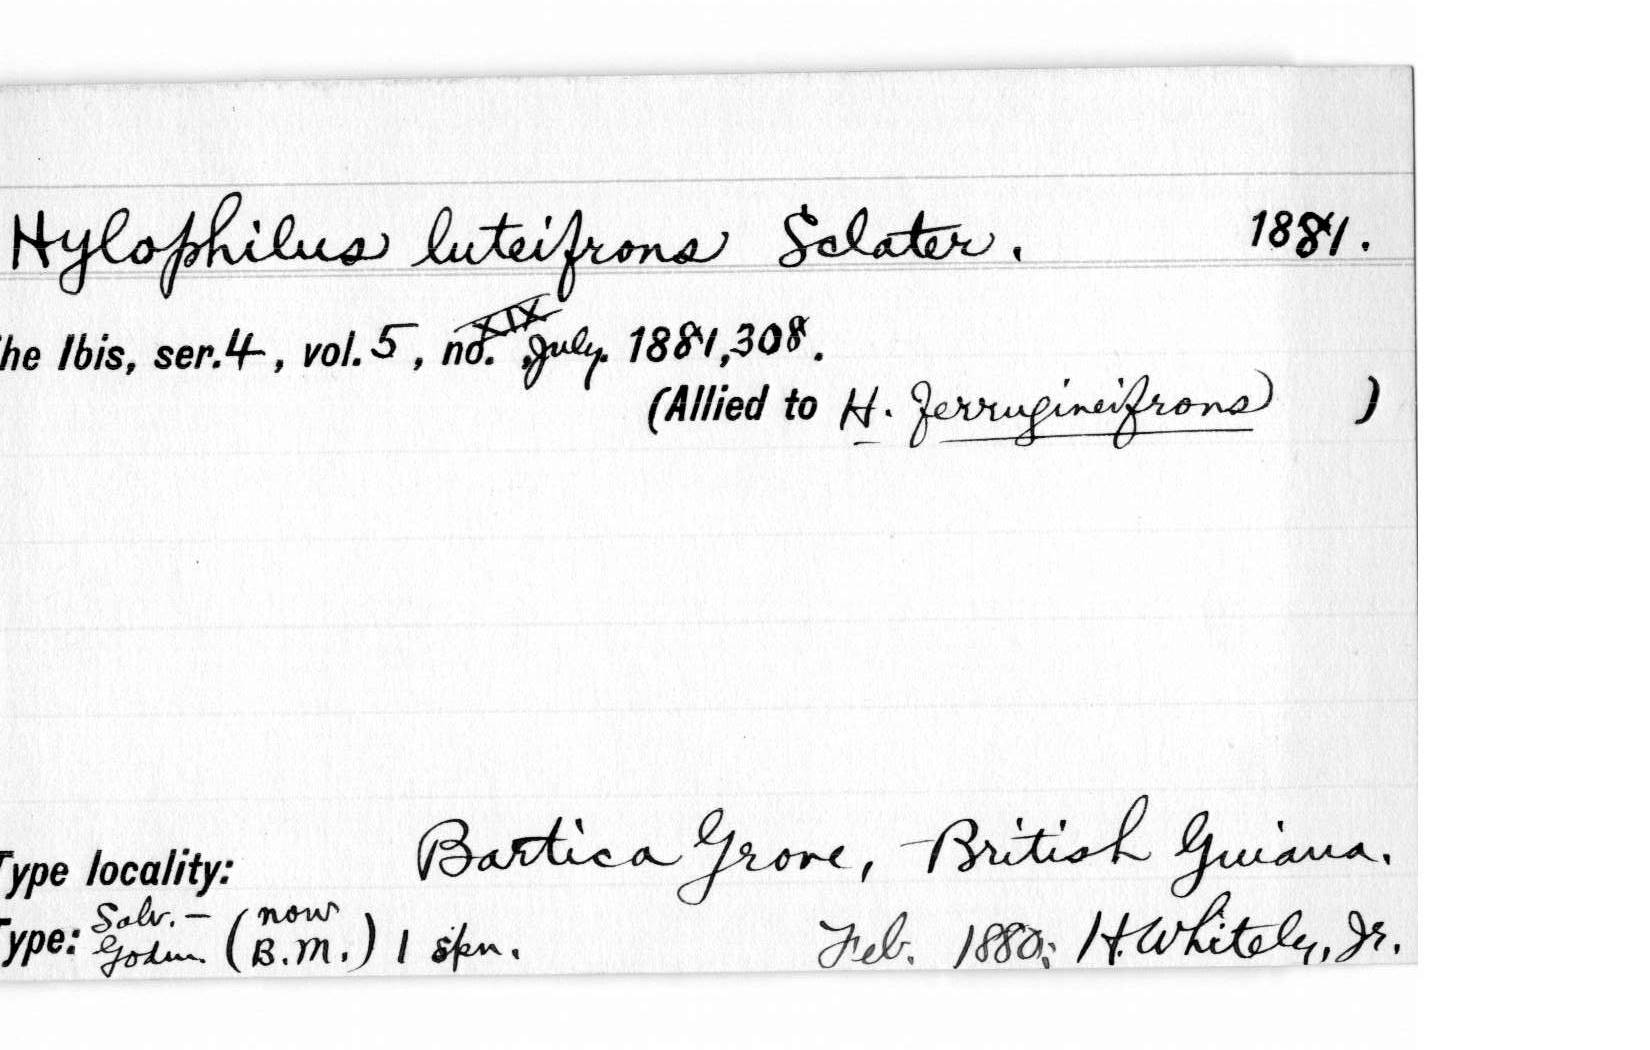 Hylophilus luteifrons Sclater. 1881.
he Ibis, ser.4, vol.5, no. XIX, July. 1881, 308.
(Allied to H. ferrugineifrons )
Type locality: Bartica Grove, British Guiana.
Type: Salv.- Godm. (now B.M.) 1 spn. Feb. 1880; H. Whitely, Jr.